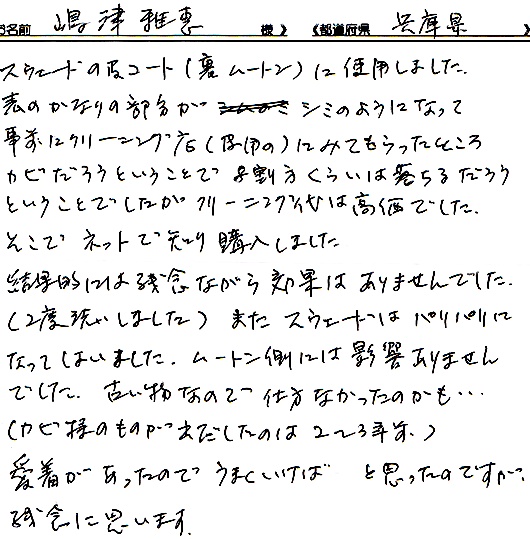 お名前 嶋津雅恵 様》 《都道府県 兵庫県 》
スウェードの皮コート(裏ムートン)に使用しました.
表のかなりの部分が シミのようになって
事前にクリーニング店(専門の)にみてもらったところ
カビだろうということで 8割方くらいは落ちるだろう
ということでしたが クリーニング代は高価でした.
そこで ネットで知り購入しました
結果的には残念ながら効果はありませんでした.
(2度洗いしました) また スウェードはパリパリに
なってしまいました. ムートン側には影響ありません
でした. 古い物なので仕方なかったのかも…
(カビ様のものが まだしたのは 2~3年前.)
愛着があったので うまくいけば と思ったのですが.
残念に思います.